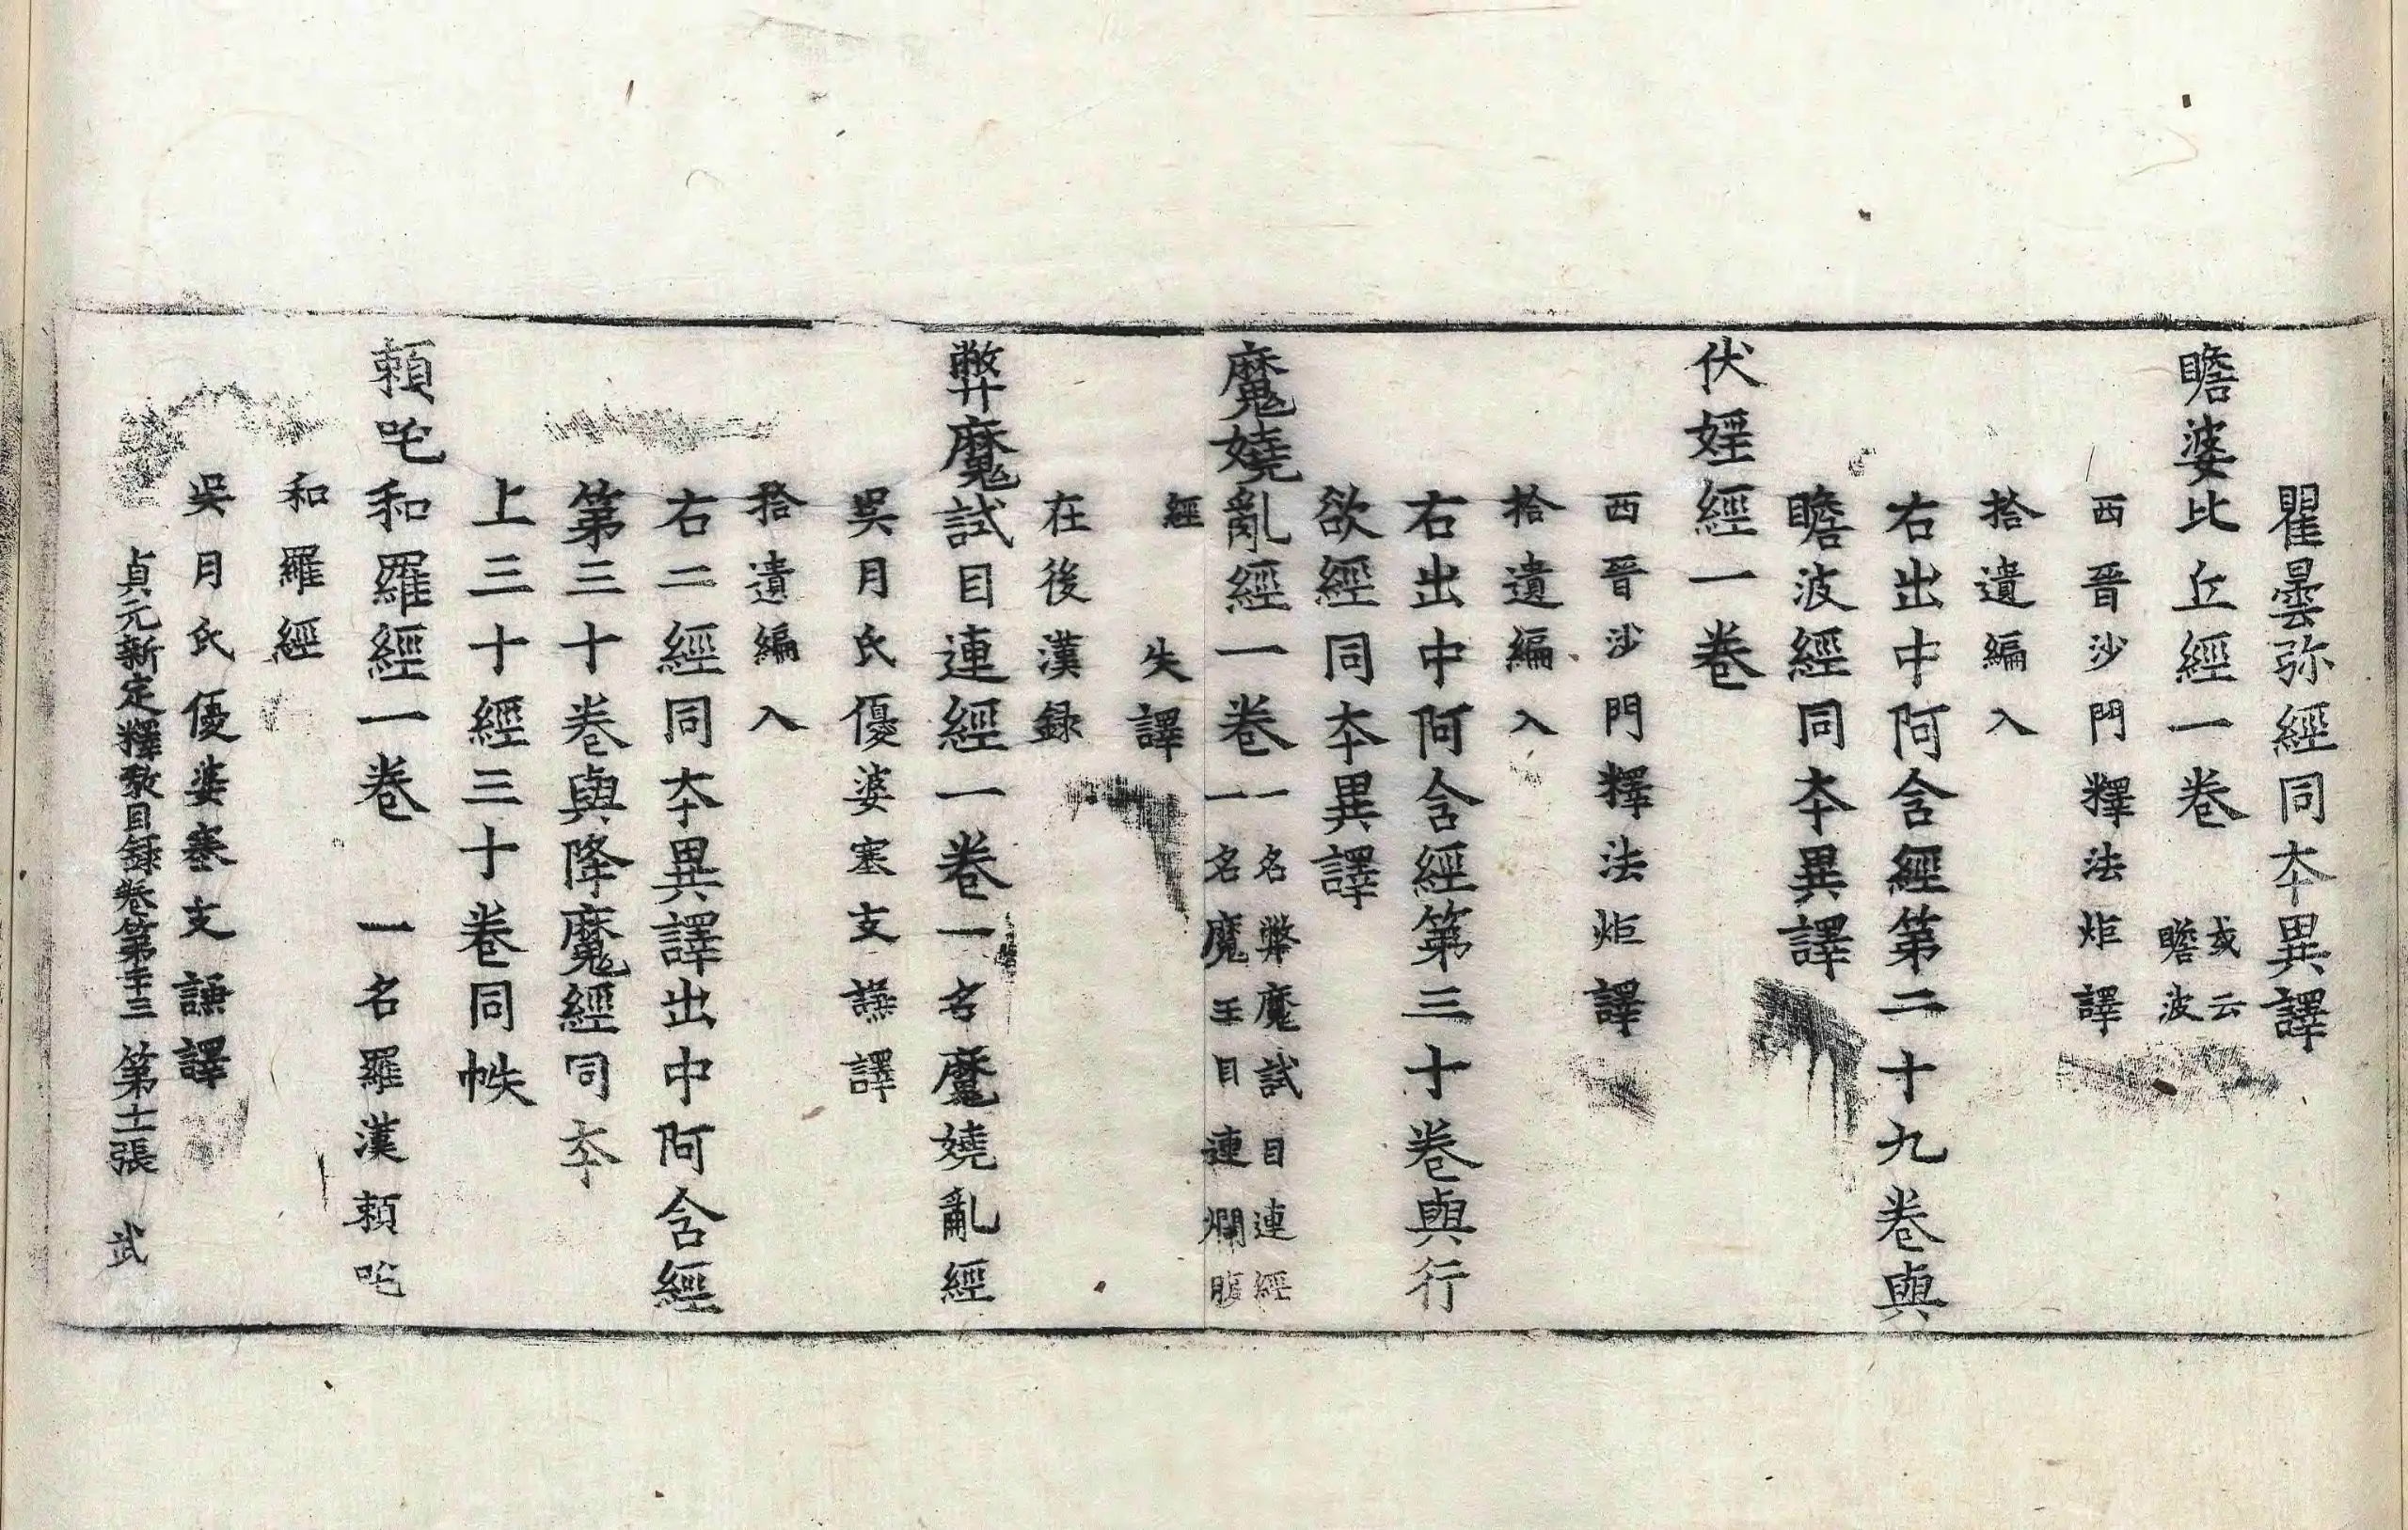 瞿曇弥經同夲異譯
瞻婆比丘經一卷 或云瞻波
西晉沙門釋法炬譯
拾遺編入
右出中阿含經第二十九卷與
瞻波經同夲異譯
伏婬經一卷
西晉沙門釋法炬譯
拾遺編入
右出中阿含經第三十卷與行
欲經同夲異譯
魔嬈亂經一卷 一名弊魔試目連經
一名魔王目連爛腹
經
失譯
在後漢録
弊魔試目連經一卷 一名魔嬈亂經
吳月氏優婆塞支謙譯
拾遺編入
右二經同夲異譯出中阿含經
第三十卷與降魔經同夲
上三十經三十卷同帙
頼吒和羅經一卷 一名羅漢頼吒
和羅經
吳月氏優婆塞支謙譯
貞元新定釋教目録卷第三十三 第十二張 武